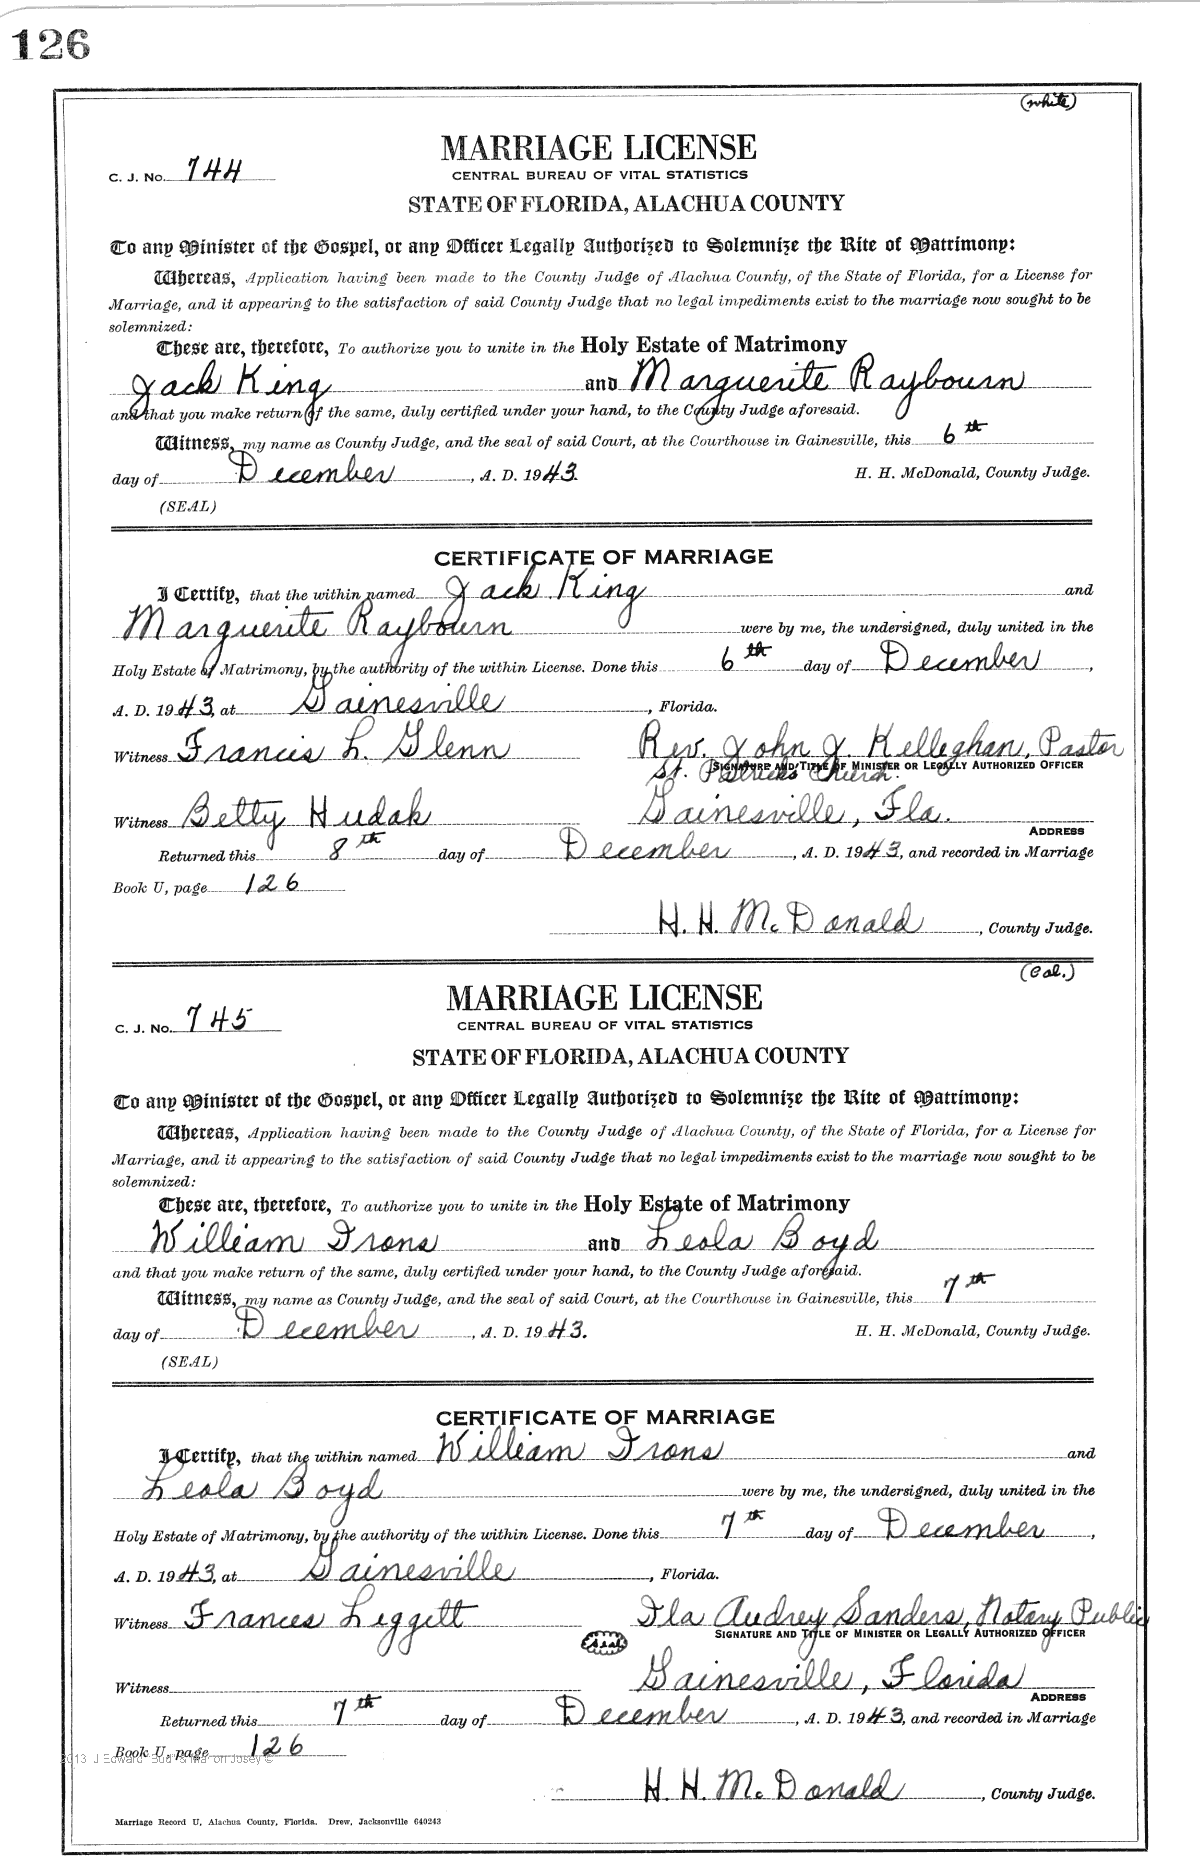 126
(white)
MARRIAGE LICENSE
C. J. No. 744
CENTRAL BUREAU OF VITAL STATISTICS
STATE OF FLORIDA, ALACHUA COUNTY
To any Minister of the Gospel, or any Officer Legally Authorized to Solemnize the Rite of Matrimony:
Whereas, Application having been made to the County Judge of Alachua County, of the State of Florida, for a License for
Marriage, and it appearing to the satisfaction of said County Judge that no legal impediments exist to the marriage now sought to be
solemnized:
These are, therefore, To authorize you to unite in the Holy Estate of Matrimony
Jack King and Marguerite Raybourn
and that you make return of the same, duly certified under your hand, to the County Judge aforesaid.
Witness, my name as County Judge, and the seal of said Court, at the Courthouse in Gainesville, this 6th
day of December, A. D. 1943. H. H. McDonald, County Judge.
(SEAL)
CERTIFICATE OF MARRIAGE
I Certify, that the within named Jack King and
Marguerite Raybourn were by me, the undersigned, duly united in the
Holy Estate of Matrimony, by the authority of the within License. Done this 6th day of December,
A. D. 1943, at Gainesville, Florida.
Witness Francis L. Glenn Rev. John J. Kelleghan, Pastor
SIGNATURE AND TITLE OF MINISTER OR LEGALLY AUTHORIZED OFFICER
St. Patricks Church.
Witness Betty Hudak Gainesville, Fla.
ADDRESS
Returned this 8th day of December, A. D. 1943, and recorded in Marriage
Book U, page 126
H. H. McDonald, County Judge.
(Col.)
MARRIAGE LICENSE
C. J. No. 745
CENTRAL BUREAU OF VITAL STATISTICS
STATE OF FLORIDA, ALACHUA COUNTY
To any Minister of the Gospel, or any Officer Legally Authorized to Solemnize the Rite of Matrimony:
Whereas, Application having been made to the County Judge of Alachua County, of the State of Florida, for a License for
Marriage, and it appearing to the satisfaction of said County Judge that no legal impediments exist to the marriage now sought to be
solemnized:
These are, therefore, To authorize you to unite in the Holy Estate of Matrimony
William Irons and Leola Boyd
and that you make return of the same, duly certified under your hand, to the County Judge aforesaid.
Witness, my name as County Judge, and the seal of said Court, at the Courthouse in Gainesville, this 7th
day of December, A. D. 1943. H. H. McDonald, County Judge.
(SEAL)
CERTIFICATE OF MARRIAGE
I Certify, that the within named William Irons and
Leola Boyd were by me, the undersigned, duly united in the
Holy Estate of Matrimony, by the authority of the within License. Done this 7th day of December,
A. D. 1943, at Gainesville, Florida.
Witness Frances Leggett Ila Audrey Sanders, Notary Public
SIGNATURE AND TITLE OF MINISTER OR LEGALLY AUTHORIZED OFFICER
(seal)
Witness Gainesville, Florida
ADDRESS
Returned this 7th day of December, A. D. 1943, and recorded in Marriage
Book U, page 126
2013 J Edward Josey ©
H. H. McDonald, County Judge.
Marriage Record U, Alachua County, Florida. Drew, Jacksonville 640243